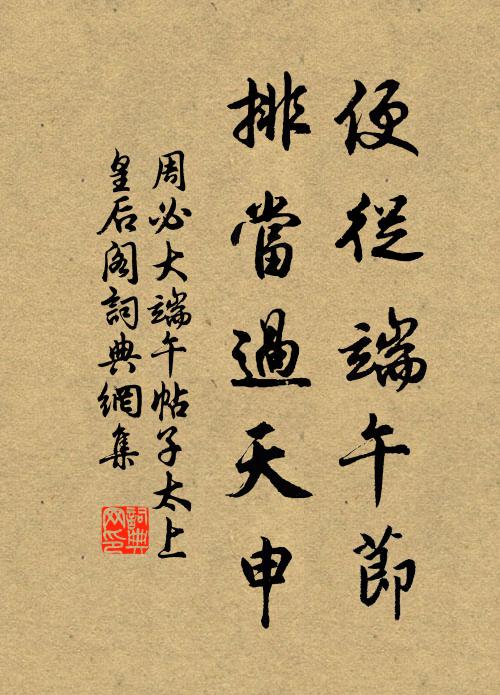 便從端午節
排當過天申
周必大端午帖子太上
皇后阁詞典網集
詞典网印